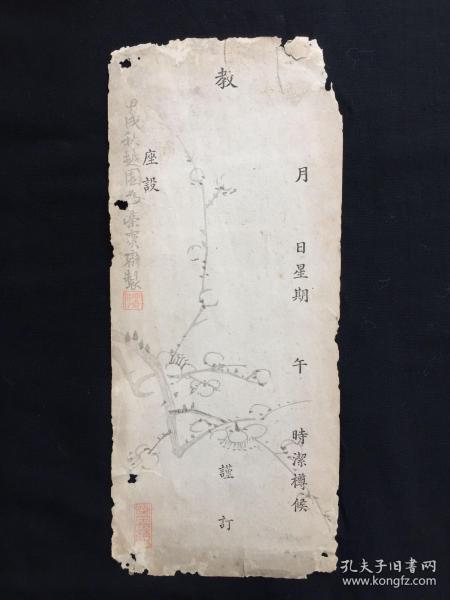 月　日星期　午　時潔樽候
教
謹訂
座設
甲戌秋越園為榮寶齋製
孔夫子旧书网
www.kongfz.com